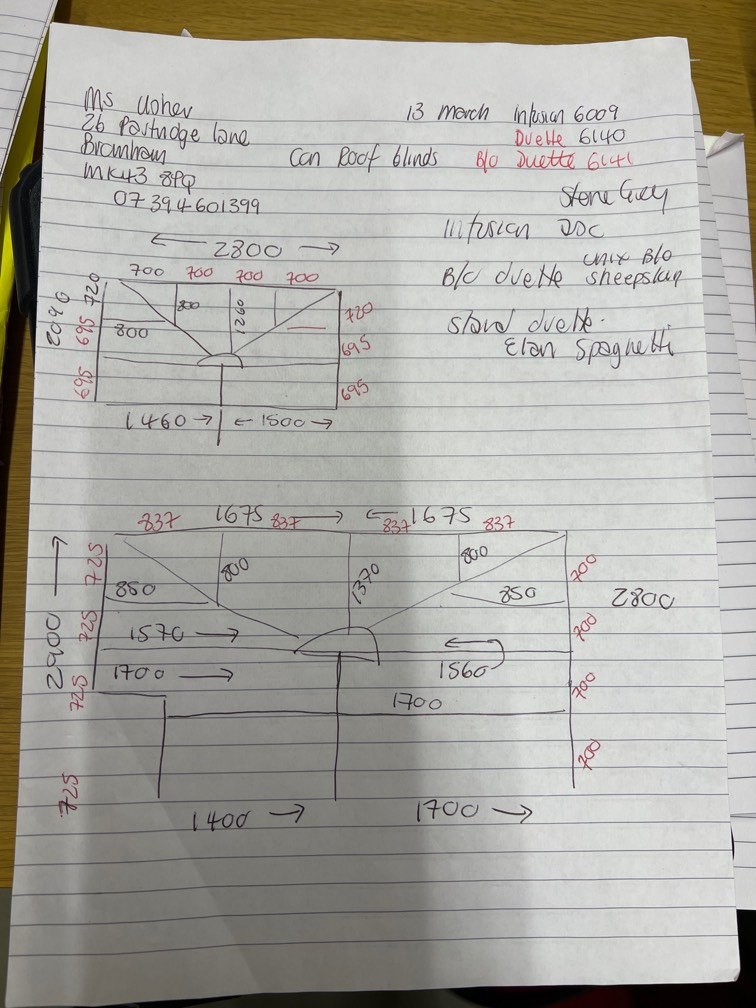 Ms Usher
26 Partridge Lane
Bromham
MK43 8PQ
07394601399
13 March Infusion 6009
Duette 6140
Con Roof blinds B/O Duette 6141
Stone Grey
Infusion DDC
Unix B/O
B/O duette sheepskin
stand duette.
Elan Spaghetti
2800
700 700 700 700
2090
720 800 1260 720
695 800 695
695 695
1460 1500
837 1675 837 837 1675 837
2900
725 800 1370 800 700
850 850 2800
725 1570 700
1700 1560
725 1700 700
725 700
1400 1700